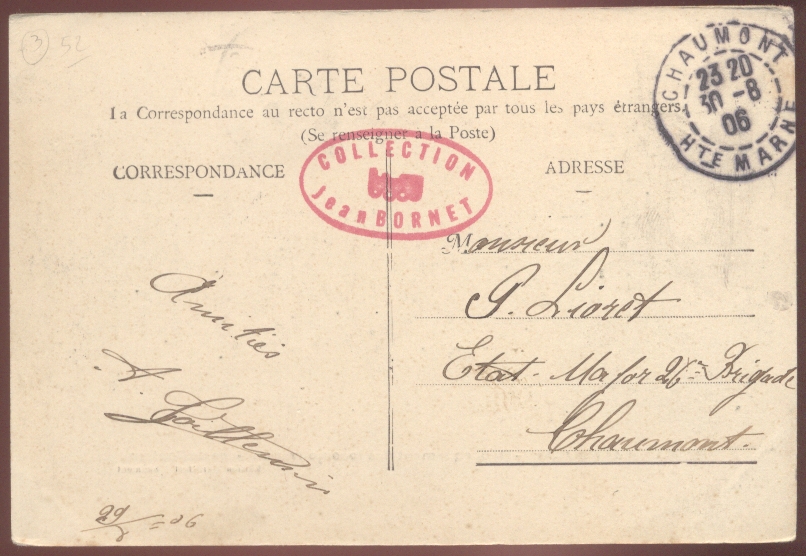 3 52
CARTE POSTALE
La Correspondance au recto n'est pas acceptée par tous les pays étrangers.
(Se renseigner à la Poste)
CORRESPONDANCE
ADRESSE
CHAUMONT
23 20
30 -8
06
HTE MARNE
COLLECTION
Jean BORNET
Monsieur
P. Lioret
Etat-Major 26me Brigade
Chaumont.
Amitiés
A.
29/8 = 06